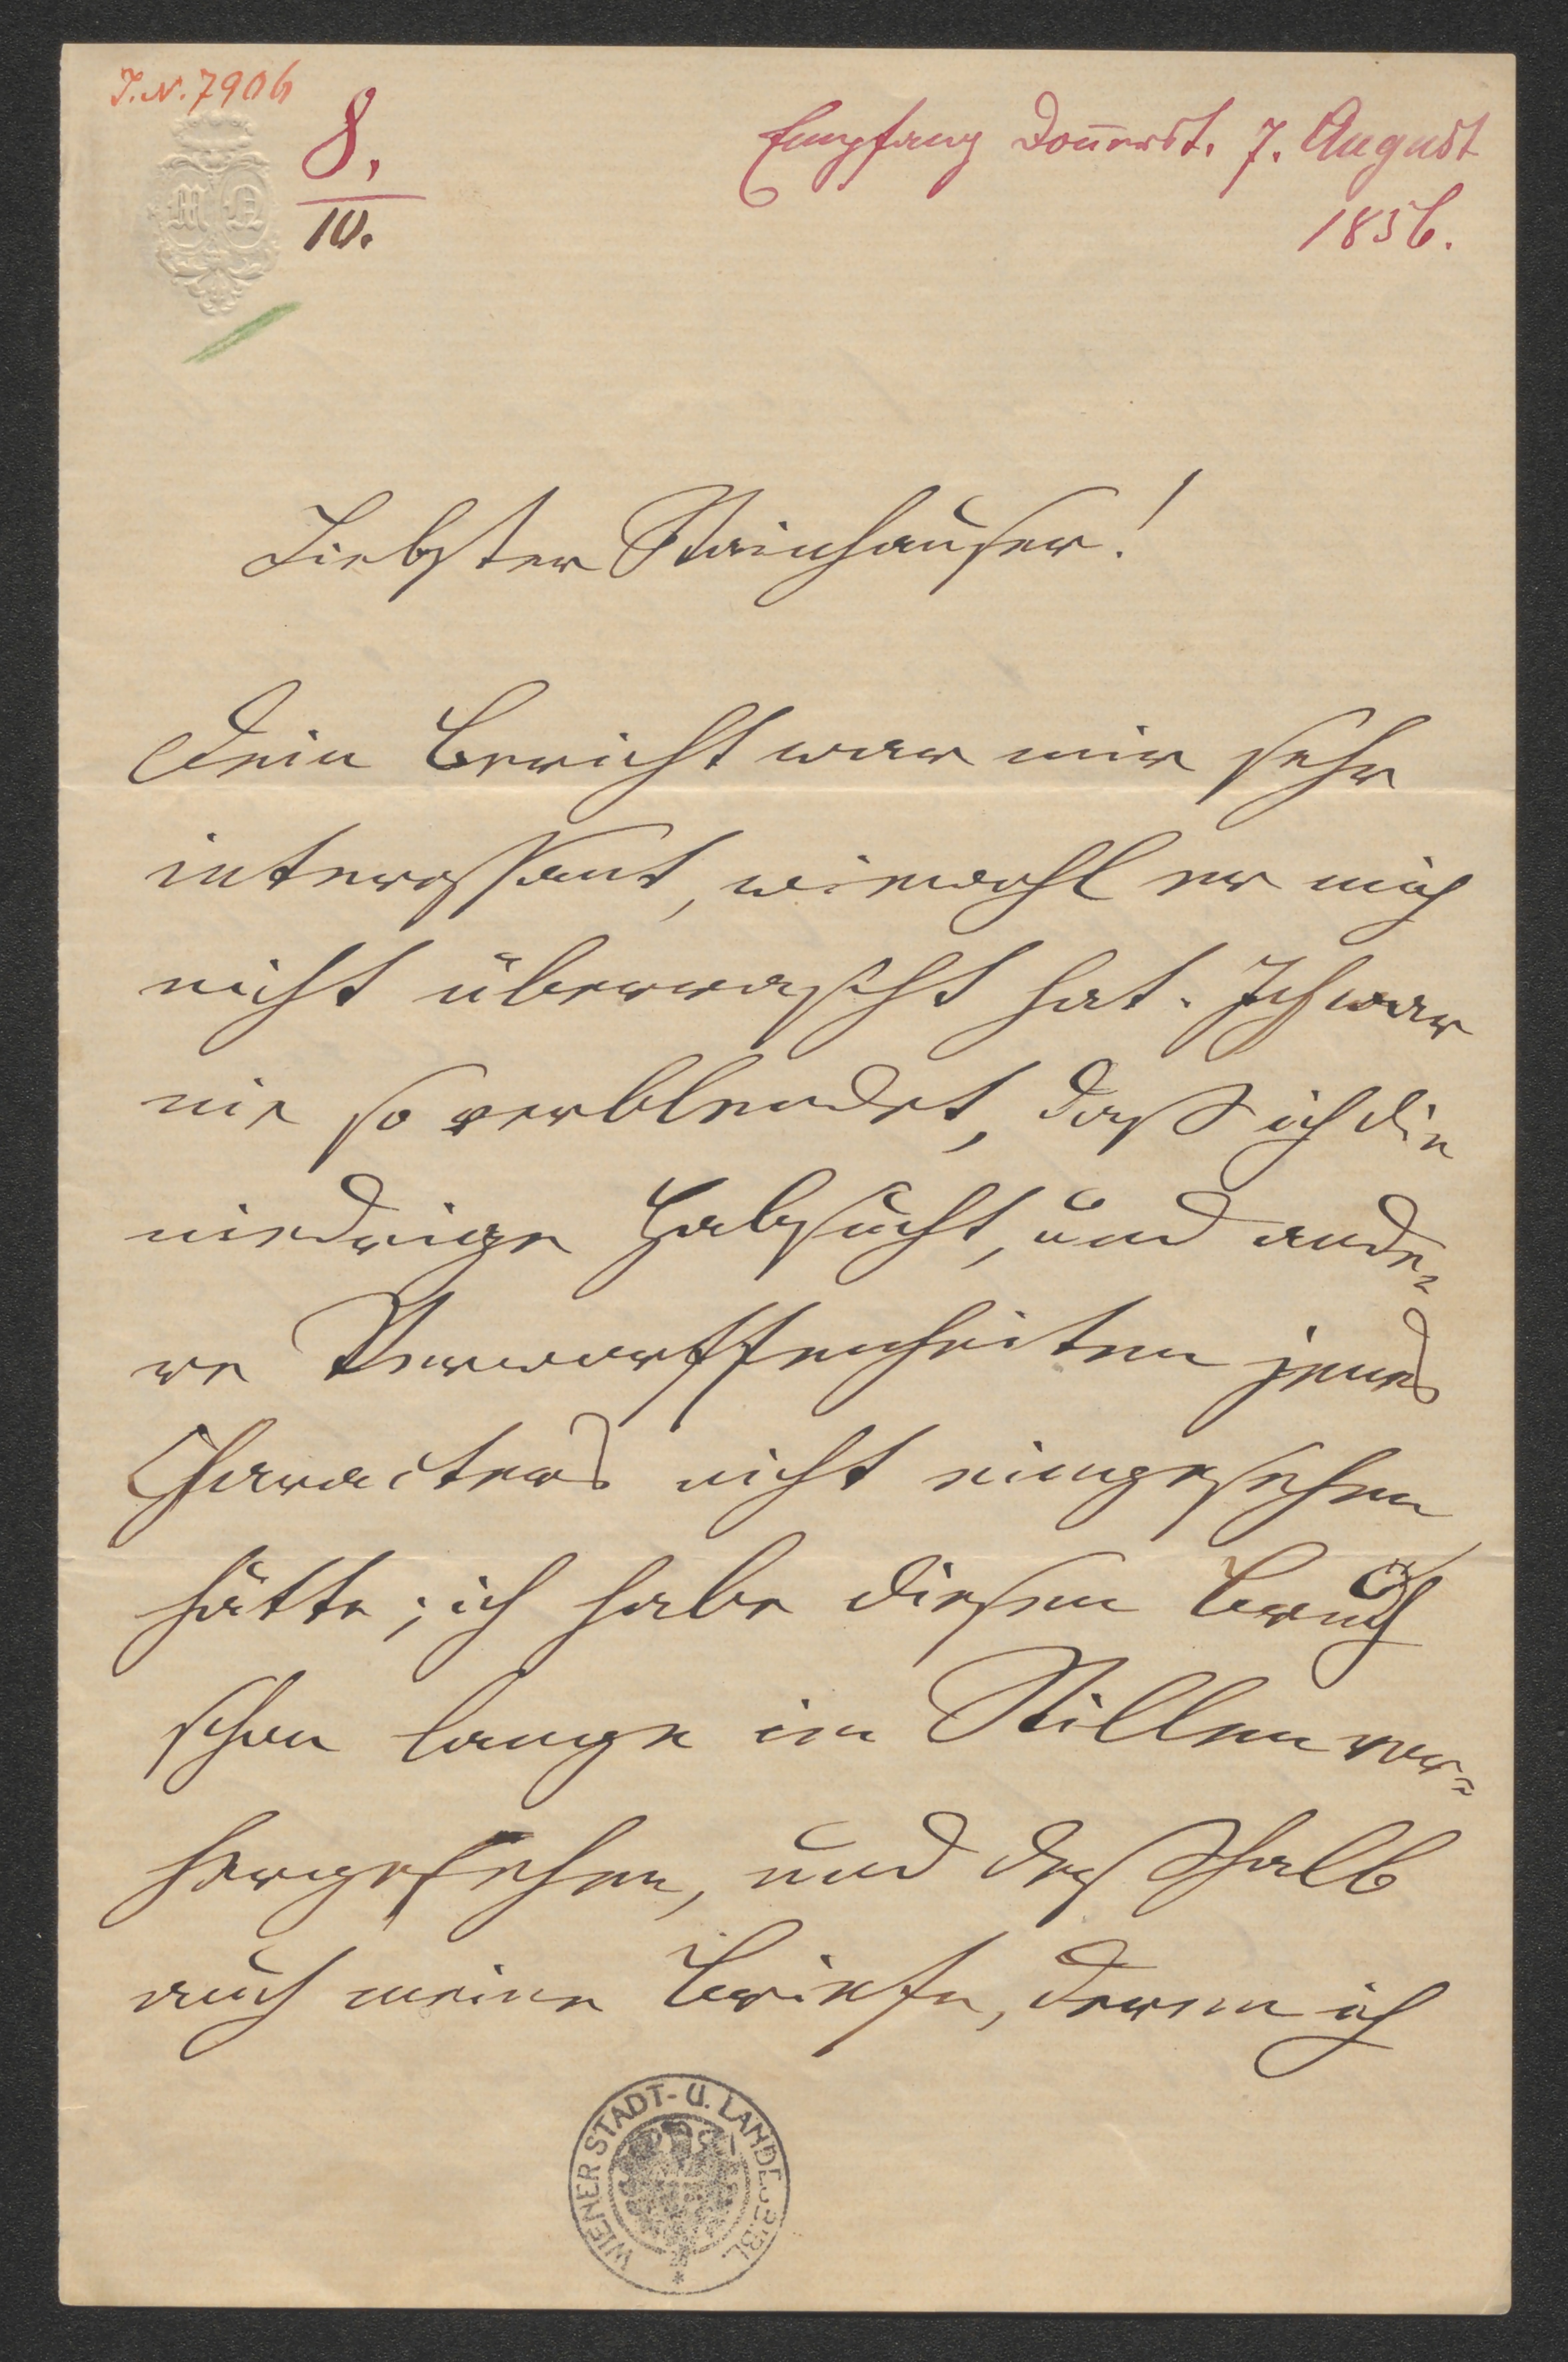 I.N. 7906
8.
10.
Empfang Don̄erst. 7. August
1856.
M N
Liebster Stainhauser!
Dein Bericht war mir sehr
interessant, wiewohl er mich
nicht überrascht hat. Ich war
nie so verblendet, daß ich die
niedrige Habsucht, und ande-
re Verworffenheiten jenes
Characters nicht eingesehen
hätte; ich habe diesen Bruch
schon lange im Stillen vor-
hergesehen, und deßhalb
auch meine Briefe, deren ich
WIENER STADT- U. LANDESBIBL.